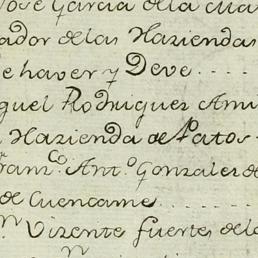 Jose Garcia de la
ador de las Haziendas
e haver y Deve....
guel Rodriguez
Hazienda de Patos
ran.co Ant.o Gonzales de
de Cuencame......
n Vizente fuertes de